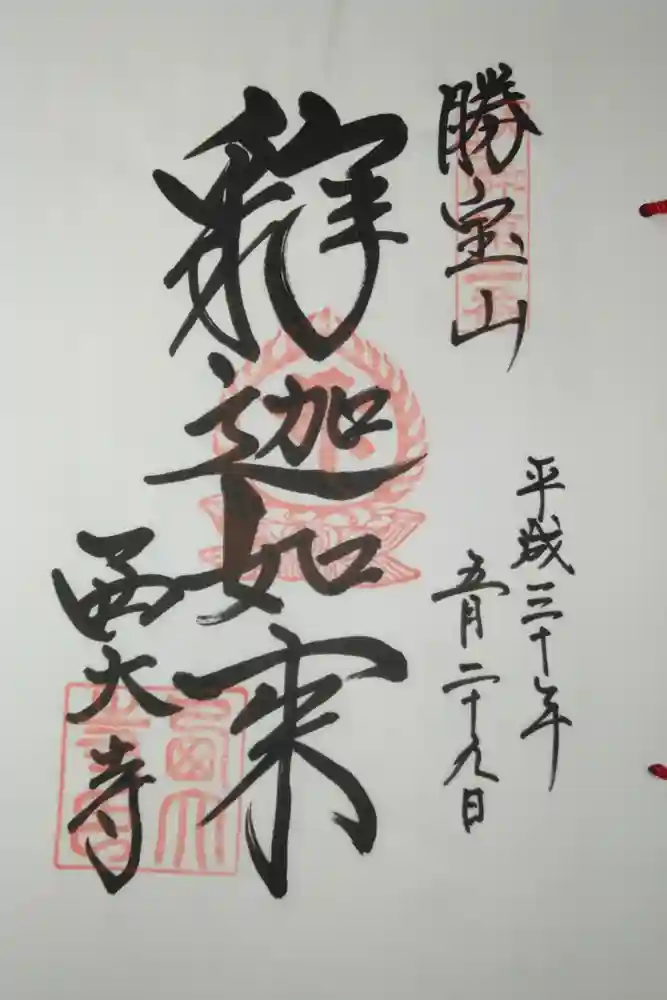 勝宝山
平成三十年
五月二十九日
釋迦如来
西大寺